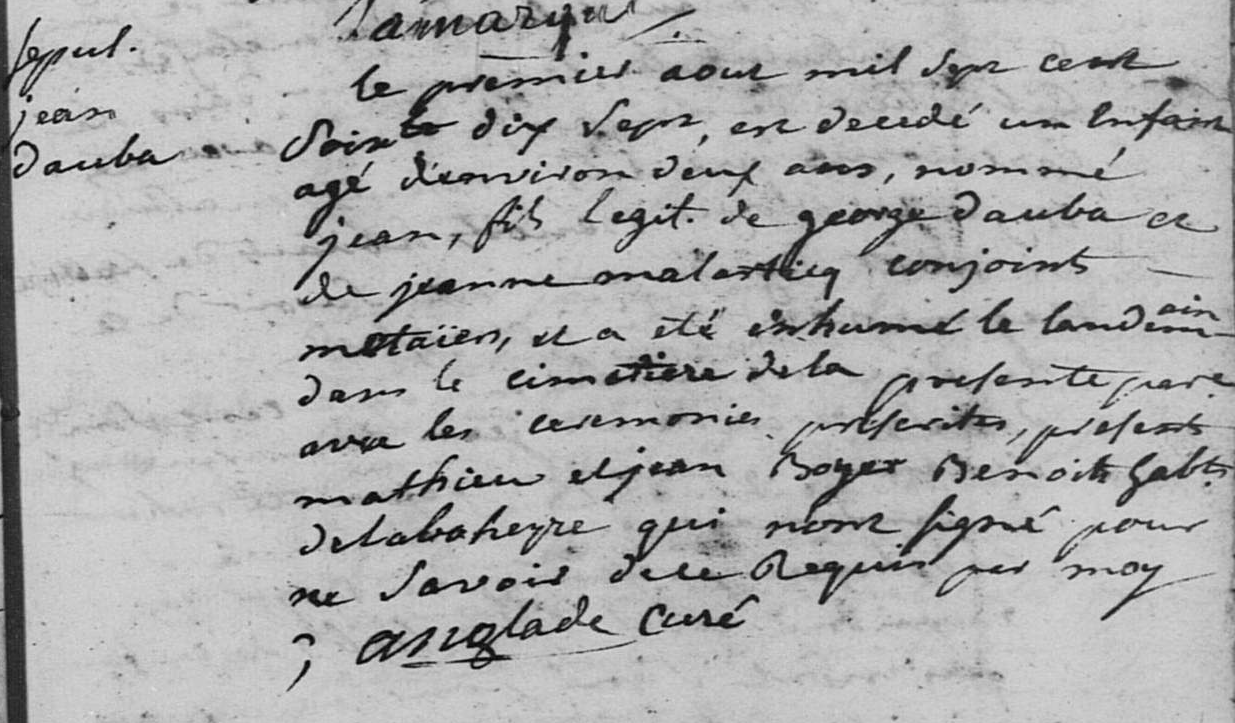 Sepul.
jean
dauba
le premier aout mil sept cent
Soixte dix Sept, est decedé un Enfant
agé d'environ deux ans, nommé
jean, fils legit. de george dauba et
de jeanne malarticq conjoints
metaiers, et a été inhumé le landemain
dans le cimetiere dela presente par.
avec les ceremonies prescrites, presents
mathieu et jean Boyer Benoit habts
delabaheyre qui n'ont signé pour
ne Savoir dece Requis par moy
anglade Curé